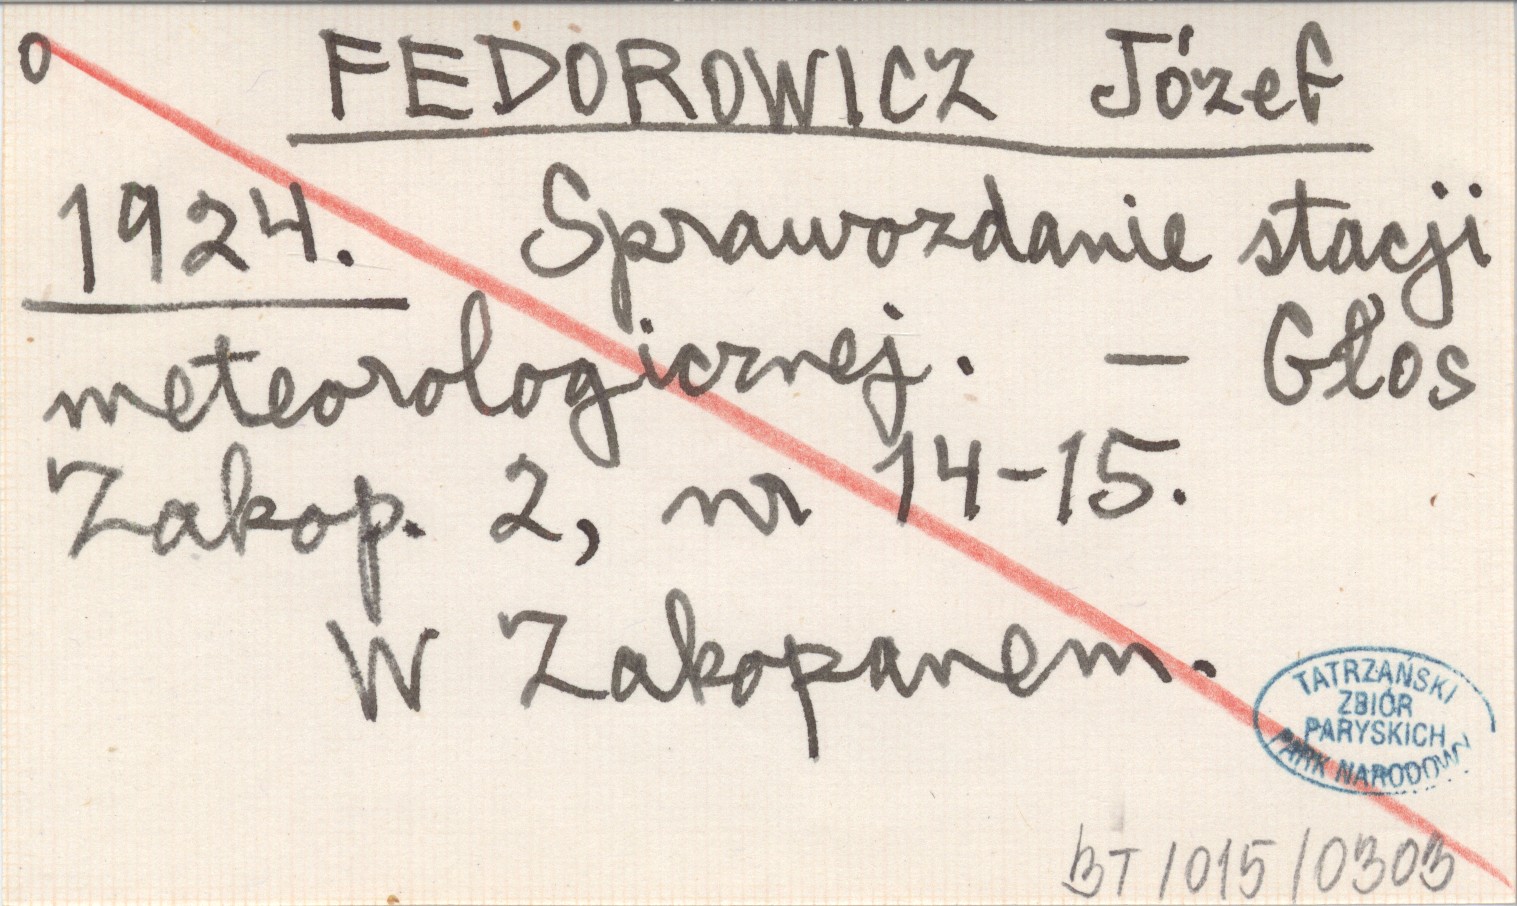 o FEDOROWICZ Józef
1924. Sprawozdanie stacji
meteorologicznej. — Głos
Zakop. 2, nr 14-15.
W Zakopanem.
TATRZAŃSKI
ZBIÓR
PARYSKICH
PARK NARODOWY
BT/015/0303